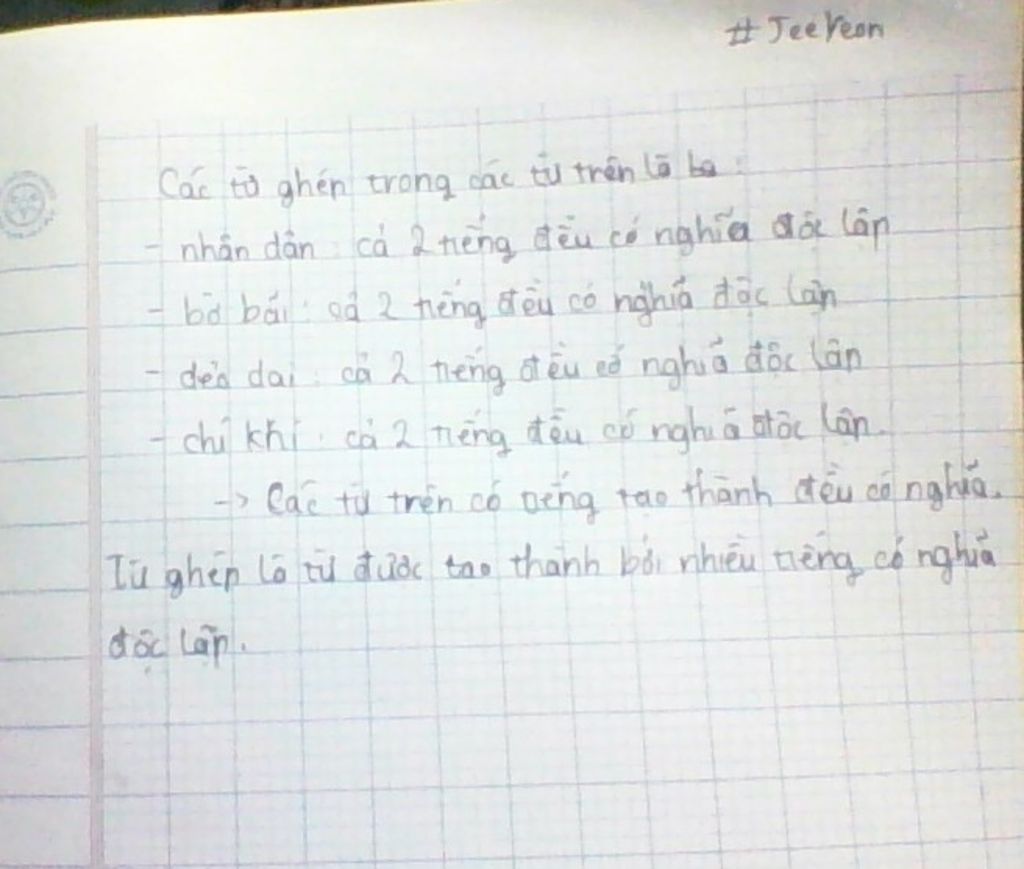 # JeeYeon
Các từ ghép trong các từ trên là ba:
- nhân dân: cả 2 tiếng đều có nghĩa độc lập
- bờ bãi: cả 2 tiếng đều có nghĩa độc lập
- dẻo dai: cả 2 tiếng đều có nghĩa độc lập
- chí khí: cả 2 tiếng đều có nghĩa độc lập.
-> Các từ trên có tiếng tạo thành đều có nghĩa.
Từ ghép là từ được tạo thành bởi nhiều tiếng có nghĩa
độc lập.